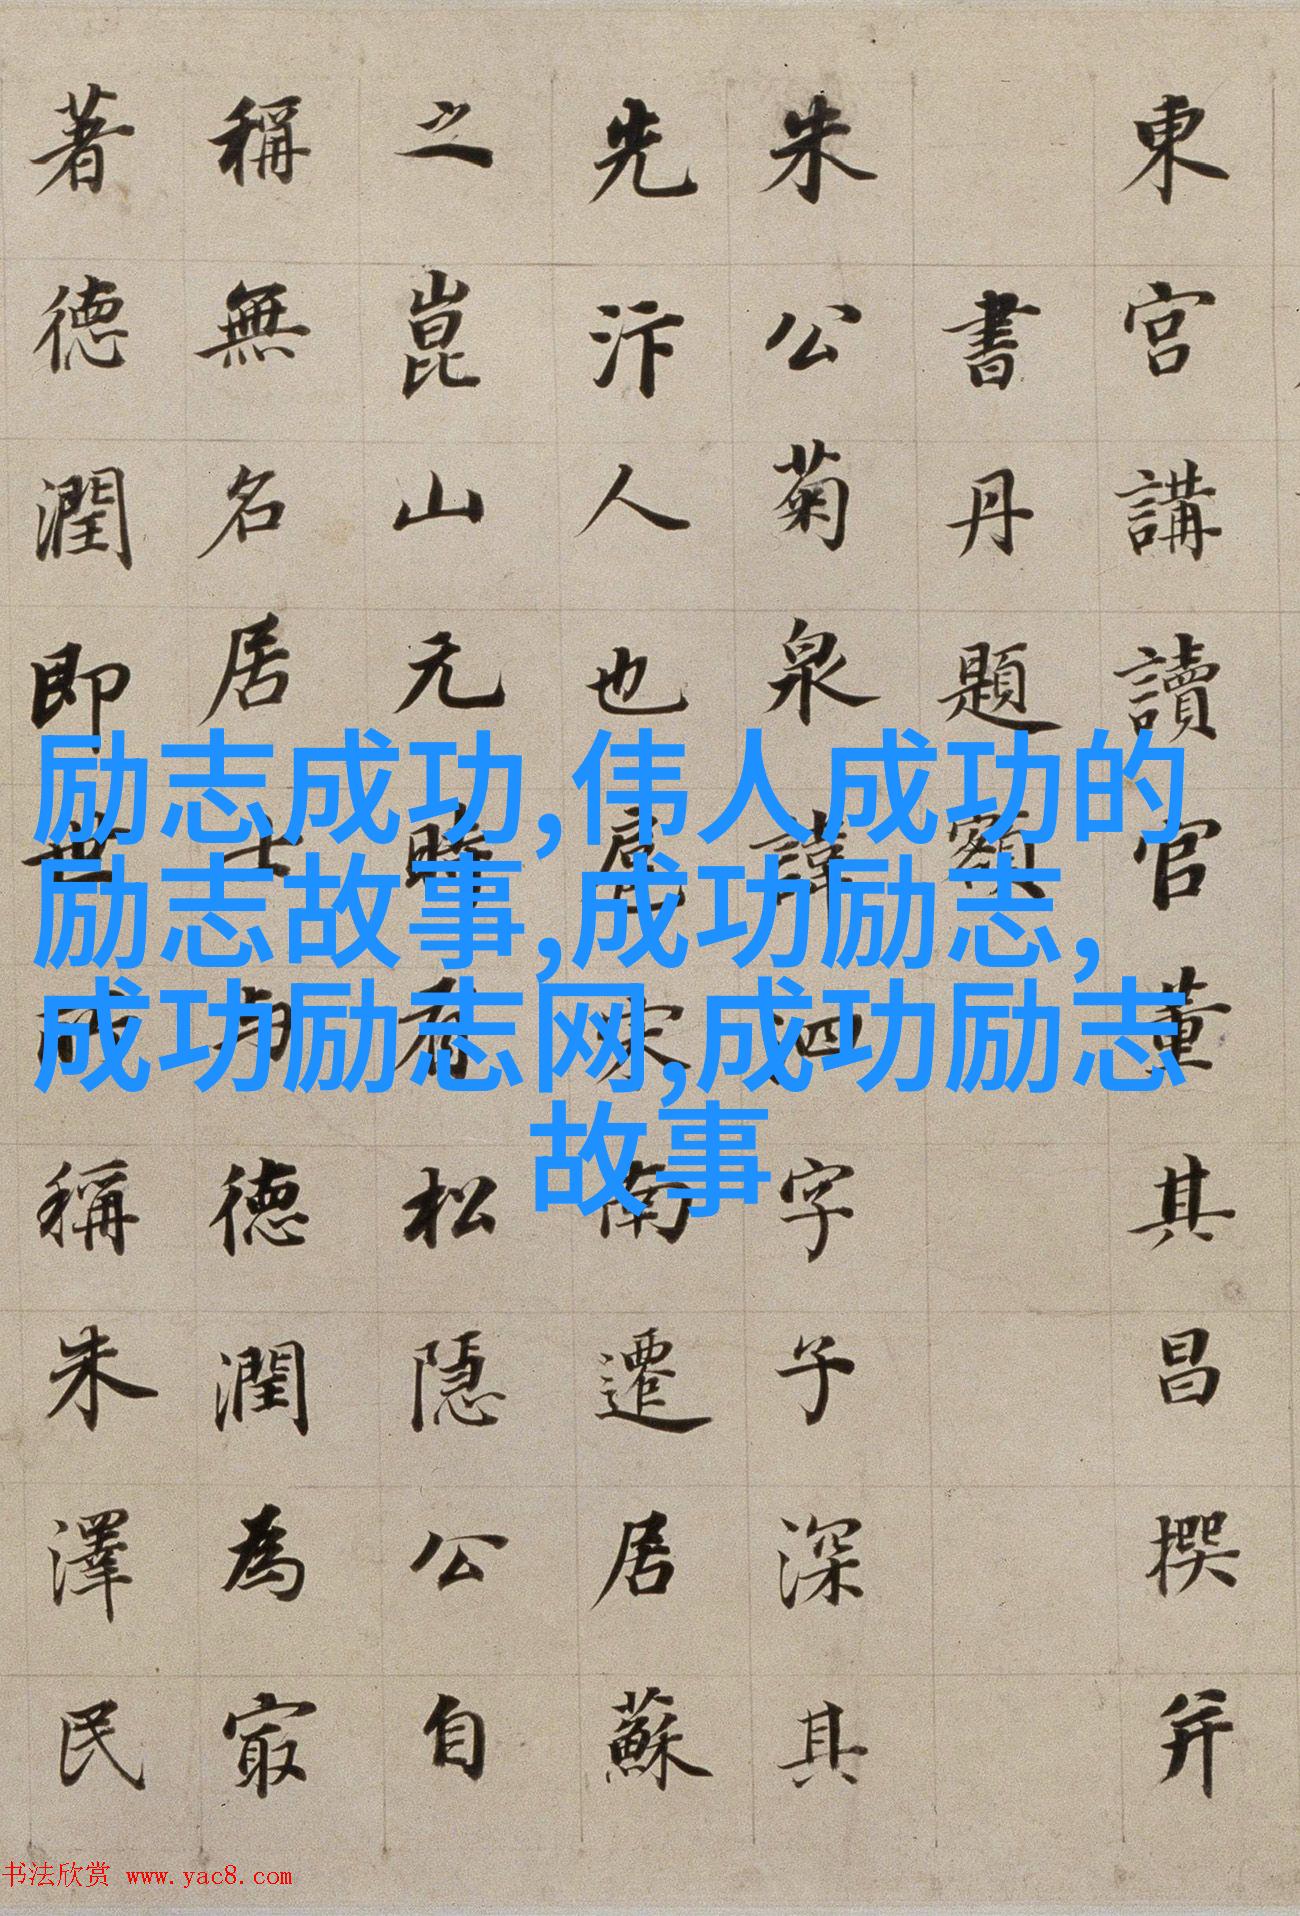 東宮講讀官董其昌撰并
書丹題額
朱公菊泉諱泗字子深其
先汴人也扈宋南遷居蘇
之崑山元時有松隱公自
稱無名居士与德潤為㝡
著德潤即世所稱朱澤民
励志成功,伟人成功的
励志故事,成功励志,
成功励志网,成功励志
故事
书法欣赏 www.yac8.com